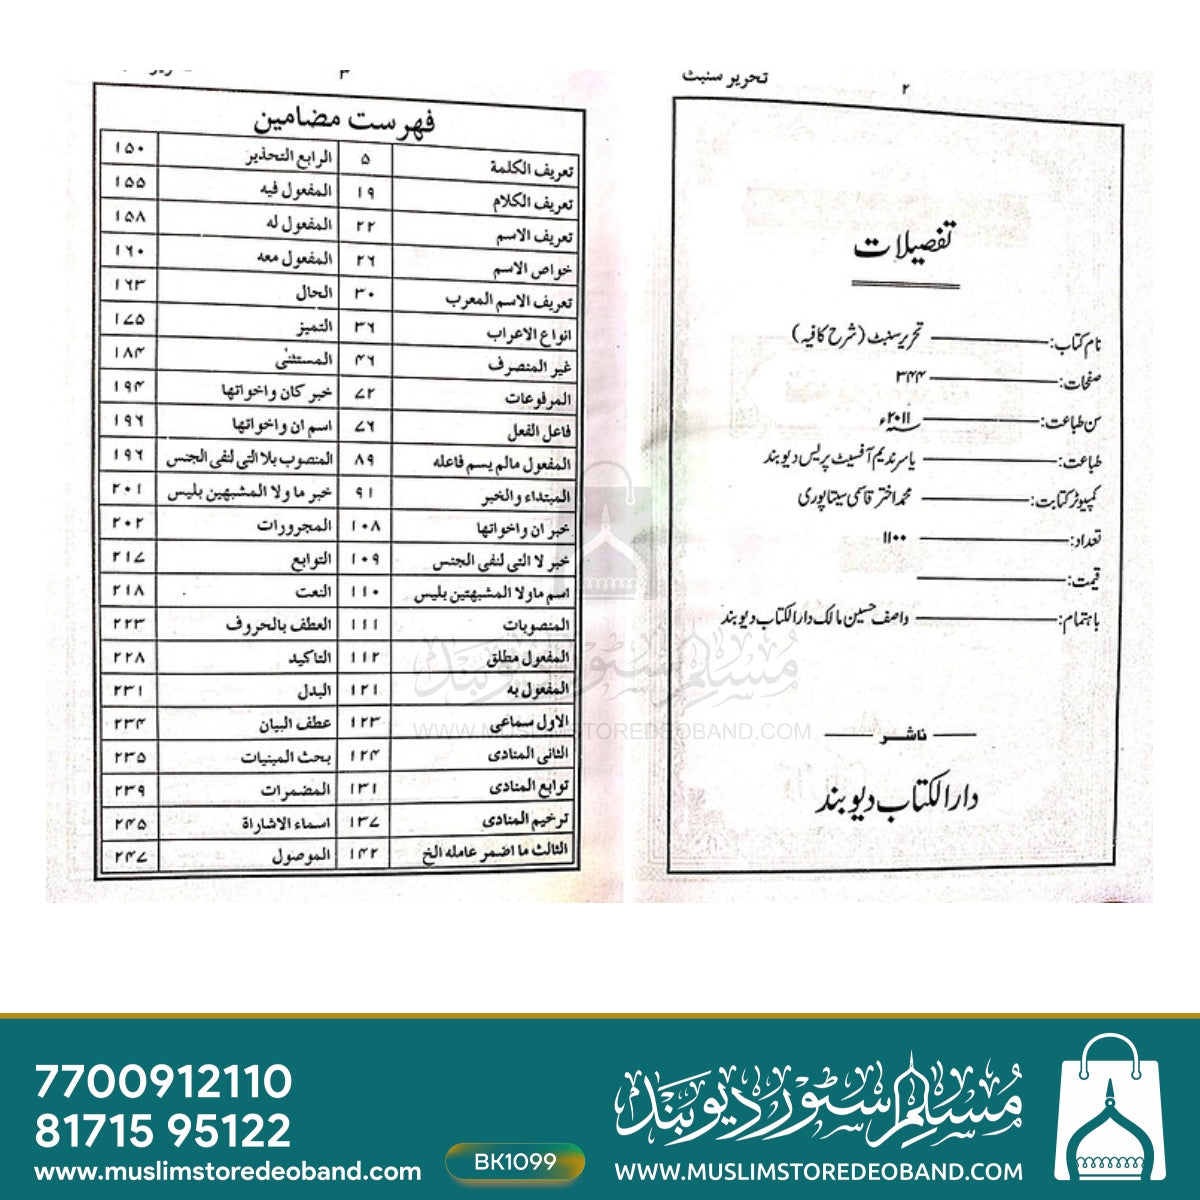 تحریر سنبٹ
۲
تفصیلات
نام کتاب: تحریر سنبٹ (شرح کافیہ)
صفحات: ۳۴۴
سن طباعت: ۲۰۱۱ء
طباعت: یاسر ندیم آفسیٹ پریس دیوبند
کمپیوٹر کتابت: محمد اختر قاسمی سیتاپوری
تعداد: ۱۱۰۰
قیمت:
باہتمام: واصف حسین مالک دارالکتاب دیوبند
ناشر
دارالکتاب دیوبند
۳
فهرست مضامین
تعریف الکلمة ۵ الرابع التحذیر ۱۵۰
تعریف الکلام ۱۹ المفعول فیه ۱۵۵
تعریف الاسم ۲۲ المفعول له ۱۵۸
خواص الاسم ۲۶ المفعول معه ۱۶۰
تعریف الاسم المعرب ۳۰ الحال ۱۶۳
انواع الاعراب ۳۶ التمیز ۱۷۵
غیر المنصرف ۴۶ المستثنٰی ۱۸۴
المرفوعات ۷۲ خبر کان واخواتها ۱۹۴
فاعل الفعل ۷۶ اسم ان واخواتها ۱۹۶
المفعول مالم یسم فاعله ۸۹ المنصوب بلا التی لنفی الجنس ۱۹۶
المبتداء والخبر ۹۱ خبر ما ولا المشبهین بلیس ۲۰۱
خبر ان واخواتها ۱۰۸ المجرورات ۲۰۲
خبر لا التی لنفی الجنس ۱۰۹ التوابع ۲۱۷
اسم ماولا المشبهتین بلیس ۱۱۰ النعت ۲۱۸
المنصوبات ۱۱۱ العطف بالحروف ۲۲۳
المفعول مطلق ۱۱۲ التاکید ۲۲۸
المفعول به ۱۲۱ البدل ۲۳۱
الاول سماعی ۱۲۳ عطف البیان ۲۳۴
الثانی المنادی ۱۲۴ بحث المبنیات ۲۳۵
توابع المنادی ۱۳۱ المضمرات ۲۳۹
ترخیم المنادی ۱۳۷ اسماء الاشاراة ۲۴۵
الثالث ما اضمر عامله الخ ۱۴۲ الموصول ۲۴۷
مسلم سٹور دیوبند
WWW.MUSLIMSTOREDEOBAND.COM
7700912110
81715 95122
www.muslimstoredeoband.com
BK1099
مسلم سٹور دیوبند
WWW.MUSLIMSTOREDEOBAND.COM